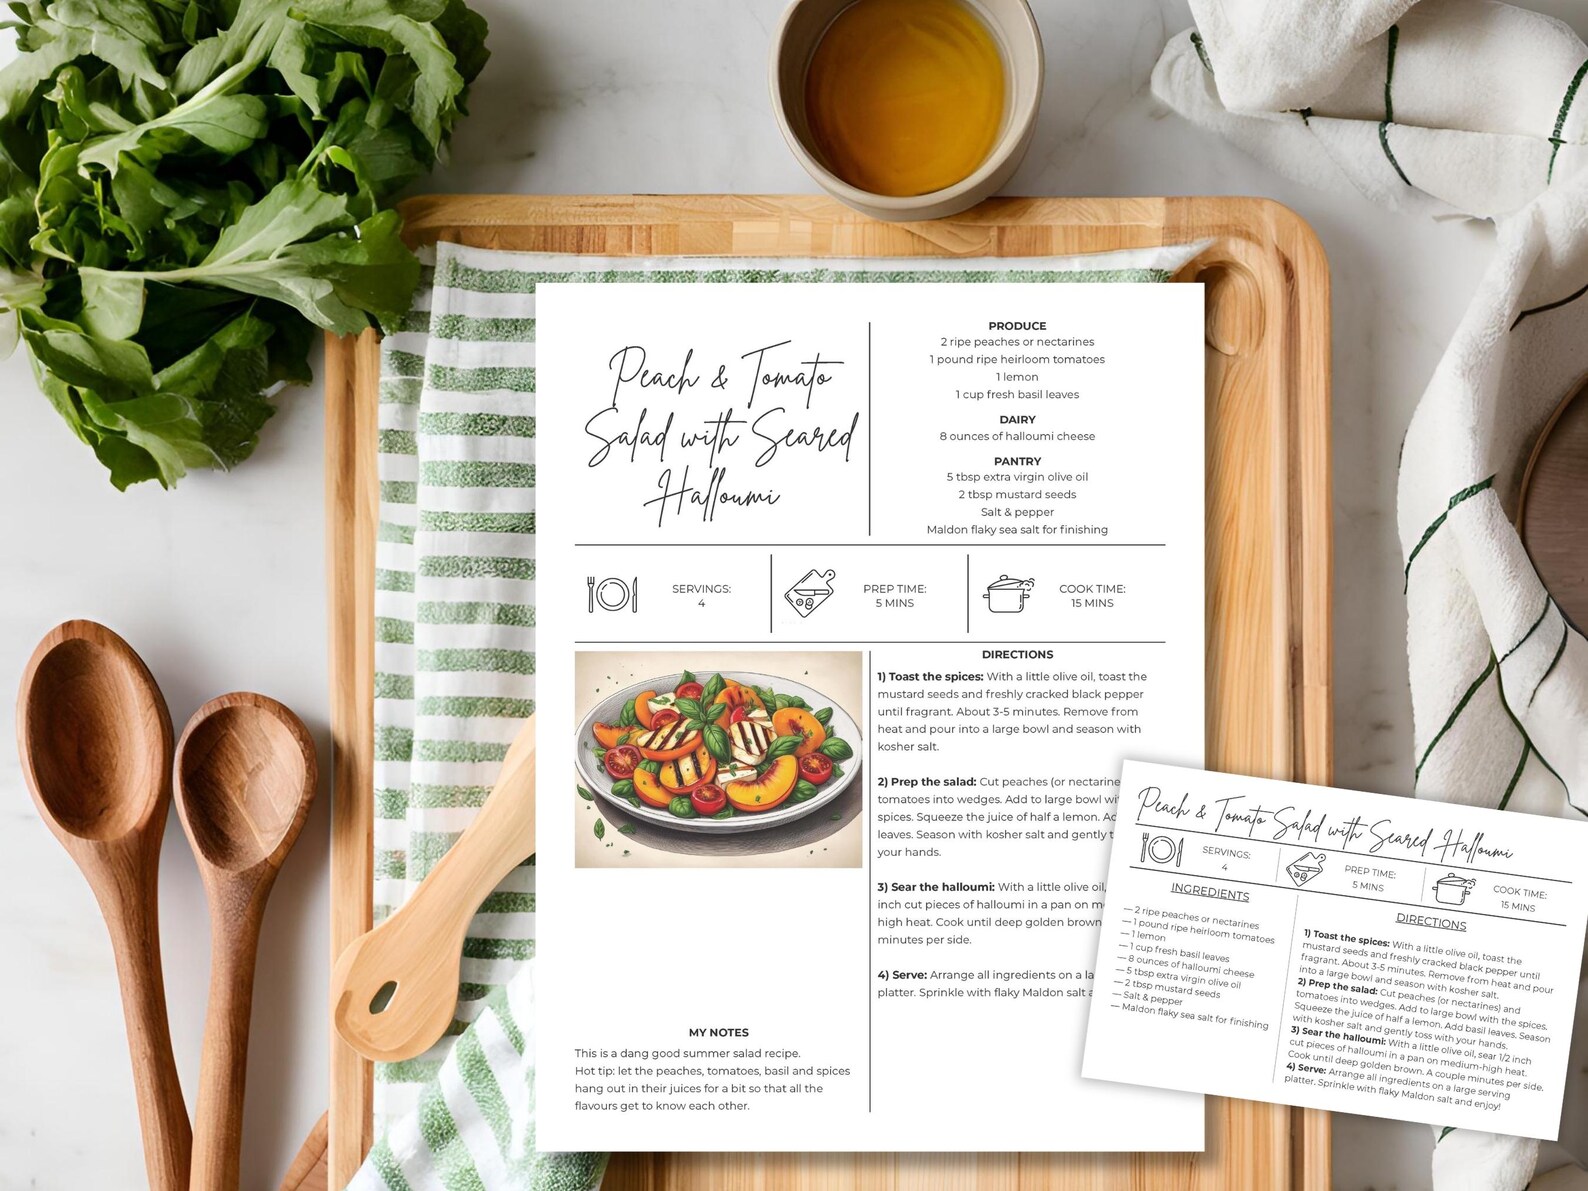 Peach & Tomato
Salad with Seared
Halloumi
PRODUCE
2 ripe peaches or nectarines
1 pound ripe heirloom tomatoes
1 lemon
1 cup fresh basil leaves
DAIRY
8 ounces of halloumi cheese
PANTRY
5 tbsp extra virgin olive oil
2 tbsp mustard seeds
Salt & pepper
Maldon flaky sea salt for finishing
SERVINGS:
4
PREP TIME:
5 MINS
COOK TIME:
15 MINS
DIRECTIONS
1) Toast the spices: With a little olive oil, toast the
mustard seeds and freshly cracked black pepper
until fragrant. About 3-5 minutes. Remove from
heat and pour into a large bowl and season with
kosher salt.
2) Prep the salad: Cut peaches (or nectarine
tomatoes into wedges. Add to large bowl wi
spices. Squeeze the juice of half a lemon. Ad
leaves. Season with kosher salt and gently t
your hands.
3) Sear the halloumi: With a little olive oil,
inch cut pieces of halloumi in a pan on m
high heat. Cook until deep golden brown
minutes per side.
4) Serve: Arrange all ingredients on a la
platter. Sprinkle with flaky Maldon salt a
MY NOTES
This is a dang good summer salad recipe.
Hot tip: let the peaches, tomatoes, basil and spices
hang out in their juices for a bit so that all the
flavours get to know each other.
Peach & Tomato Salad with Seared Halloumi
SERVINGS:
4
PREP TIME:
5 MINS
COOK TIME:
15 MINS
INGREDIENTS
— 2 ripe peaches or nectarines
— 1 pound ripe heirloom tomatoes
— 1 lemon
— 1 cup fresh basil leaves
— 8 ounces of halloumi cheese
— 5 tbsp extra virgin olive oil
— 2 tbsp mustard seeds
— Salt & pepper
— Maldon flaky sea salt for finishing
DIRECTIONS
1) Toast the spices: With a little olive oil, toast the
mustard seeds and freshly cracked black pepper until
fragrant. About 3-5 minutes. Remove from heat and pour
into a large bowl and season with kosher salt.
2) Prep the salad: Cut peaches (or nectarines) and
tomatoes into wedges. Add to large bowl with the spices.
Squeeze the juice of half a lemon. Add basil leaves. Season
with kosher salt and gently toss with your hands.
3) Sear the halloumi: With a little olive oil, sear 1/2 inch
cut pieces of halloumi in a pan on medium-high heat.
Cook until deep golden brown. A couple minutes per side.
4) Serve: Arrange all ingredients on a large serving
platter. Sprinkle with flaky Maldon salt and enjoy!